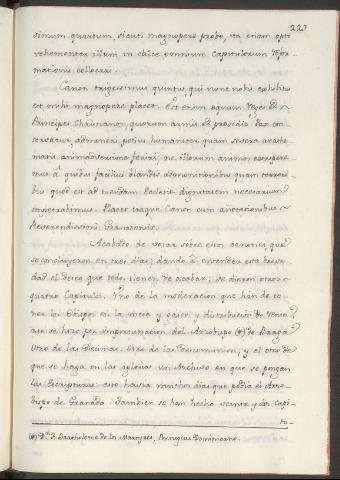 227
simum quartum, sicuti magnopere probo, ita etiam opto
vehementer illum, in calce omnium capitulorum Refor-
mationis collocari.
Canon trigesimus quintus qui nunc nobis exhibitus
est mihi magnopere placet. Est enim æquum Reges et
Principes Christianos, quorum armis et presidio Pax con-
servatur, admoneri potius humaniter, quam severa anathe-
matis animadversione feriri; ne illorum animos exaspere-
mus à quibus facilius blandis admonitionibus quam terrori-
bus quod est ad tuendam Ecclesiæ dignitatem necessarium
impetrabimus. Placet itaque Canon cum annotationibus
Reverendissimi
Acabado de votar sobre estos canones, que
se concluyeron en tres dias; dando à entender esta breve-
dad el deseo que todos tienen de acabar; se dieron otros
quatro Capitulos. Uno de la moderacion que han de te-
ner los Obispos en la mesa y gasto, y distribucion de Renta
esto se hizo por importunacion del Arzobispo (*) de Braga
Otro de las Decimas. Otro de las Descomuniones; y el otro de
que se haga en las iglesias un Archivo en que se pongan
las Escripturas: esto havia muchos dias que pedia el Arzo-
bispo de Granada. Tambien se han hecho veinte y dos Capi-
tu-
(*) Dn. F. Bartholome de los Martyres, Portugues Dominicano.